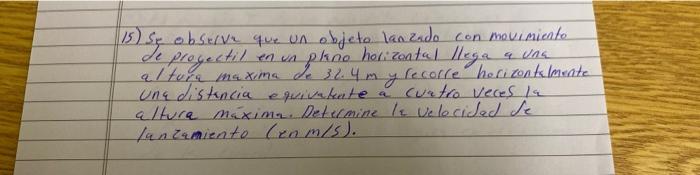 15) Se observa que un objeto lanzado con movimiento
de proyectil en un plano horizontal llega a una
altura maxima de 32.4 m y recorre horizontalmente
una distancia equivalente a cuatro veces la
altura máxima. Determine la velocidad de
lanzamiento (en m/s).